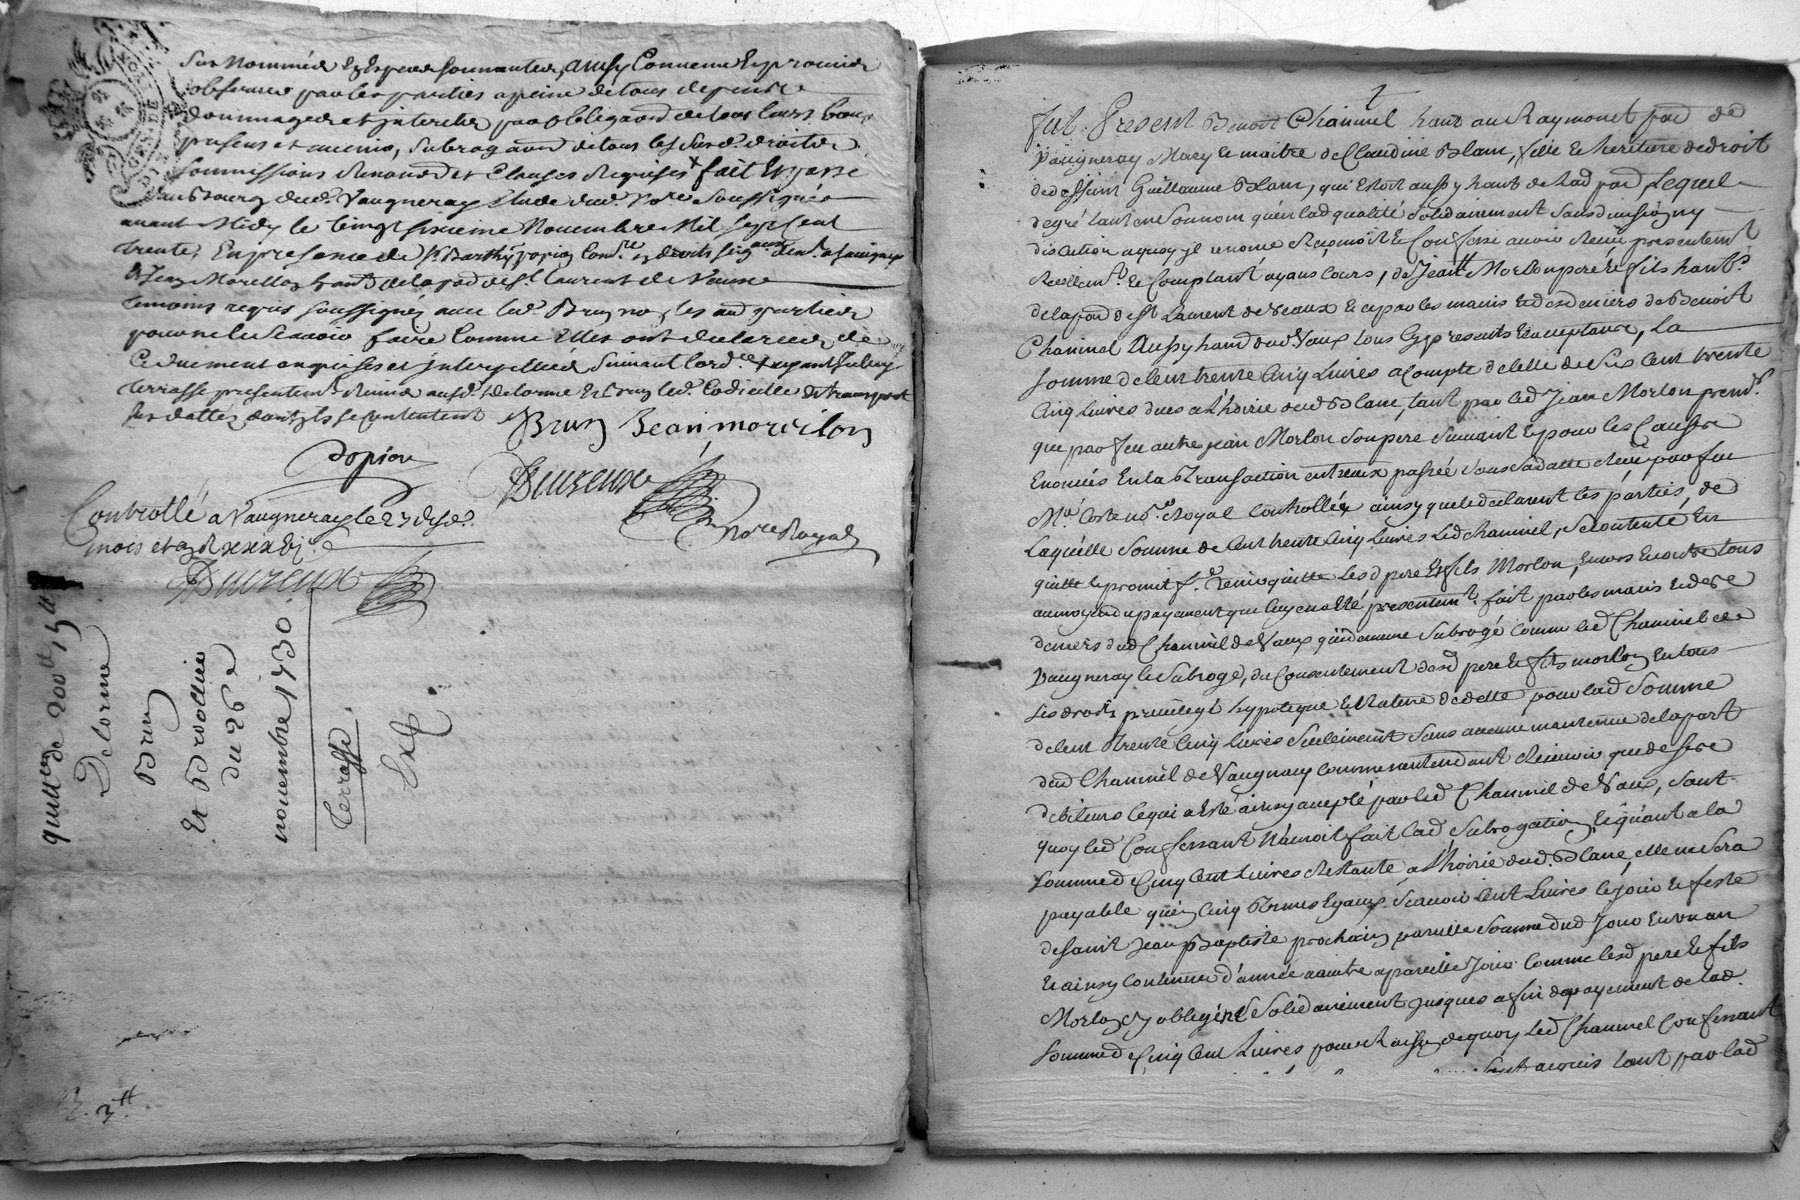 sus nommés Espesses sonnantes, ainsy Convenu Et promis
observer par les parties a peine de tous depens
dommages et interests, par obligaon de tous leurs biens
presens et avenir, subrogaon de tous les susd. droits
sommissions Renonaons et Clauses Requises fait Et passé
au Bourg dud. Vaugneray Etude dud. Nore soussigné
avant Midy le vingt sixieme Novembre Mil sept Cent
trente, En presence de Sr Barthy popion
Jean Morellon habt de la pard de St. Laurent de Vaux
temoins requis soussignés avec led. Brun non les autres parties
pour ne le scavoir faire Comme Elles ont declaré de ce
duement enquises et interpellées suivant l'ord.ce
terrasse presentemt Remis aud. Delorme Et Brun led.
sus dattés dont ils se contentent
Brun Jean morellon
popion
Dutreux
Controllé a Vaugneray le 27 desd.
mois et an R
Nore Royal
Dutreux
quittce de 200tt
Delorme
Brun
Et Brottier
du 26e
novembre 1730
Terrasse
Exp
R. 3tt
Fut Present Benoit Chanmel habt au Raymonet pard de
Vaugneray Mary Et maitre de Claudine Blanc, fille Et heritiere de droit
de deffunt Guillaume Blanc, qui Estoit aussy habt de lad pard, Lequel
de gré tant en son nom qu'en lad qualité solidairement sans division ny
discution a quoy il renonce Reconnoit Et Confesse avoir Receu presentement
Reellemt Et Comptant ayans cours, de Jean Morlon pere Et fils habts
de la pard de St Laurent de Vaux Et ce par les mains Et des deniers de Benoit
Chanmel Aussy habt dud Vaux tous Cy presents Et acceptants, La
somme de Cent trente Cinq Livres a Compte de Celle de six Cent trente
Cinq Livres dues a L'hoirie dud Blanc, tant par led Jean Morlon premr
que par feu autre Jean Morlon son pere suivant Et pour les Causes
Enoncés En la Transaction entreux passée sous sa datte Receu par feu
Me Coste Nre Royal Controllée ainsy que le declarent les parties, de
Laquelle somme de Cent trente Cinq Livres Led Chanmel, se contente En
quitte Et promet fe tenir quitte Lesd pere Et fils Morlon, Envers Et contre tous
au moyen du payement que luy en a Eté presentemt fait par les mains Et des
deniers dud Chanmel de Vaux qui demeure subrogé comme led Chanmel de
Vaugneray le subroge, du Consentement desd pere Et fils morlon En tous
ses droits privilege hypoteque Et Nature de dette pour lad Somme
de Cent trente Cinq livres seullement sans aucune maintenue de la part
dud Chanmel de Vaugneray comme n'entendant Recevoir que de ses
debiteurs Ce qui a Eté ainsy accepté par led Chanmel de Vaux, sans
quoy led Confessant N'auroit fait lad subrogation, Et quant a la
somme de Cinq Cent Livres Restante a L'hoirie dud Blanc, elle ne sera
payable qu'en Cinq Termes Egaux, scavoir Cent Livres le jour Et feste
de saint Jean Baptiste prochain pareille somme dud Jour En un an
Et ainsy Continuer d'année a autre a pareille Jour Comme lesd pere Et fils
Morlon s'y obligent solidairement jusques a fin de payement de lad.
somme de Cinq Cent Livres pour Raison de quoy Led Chanmel Confessant
acquis tant par lad